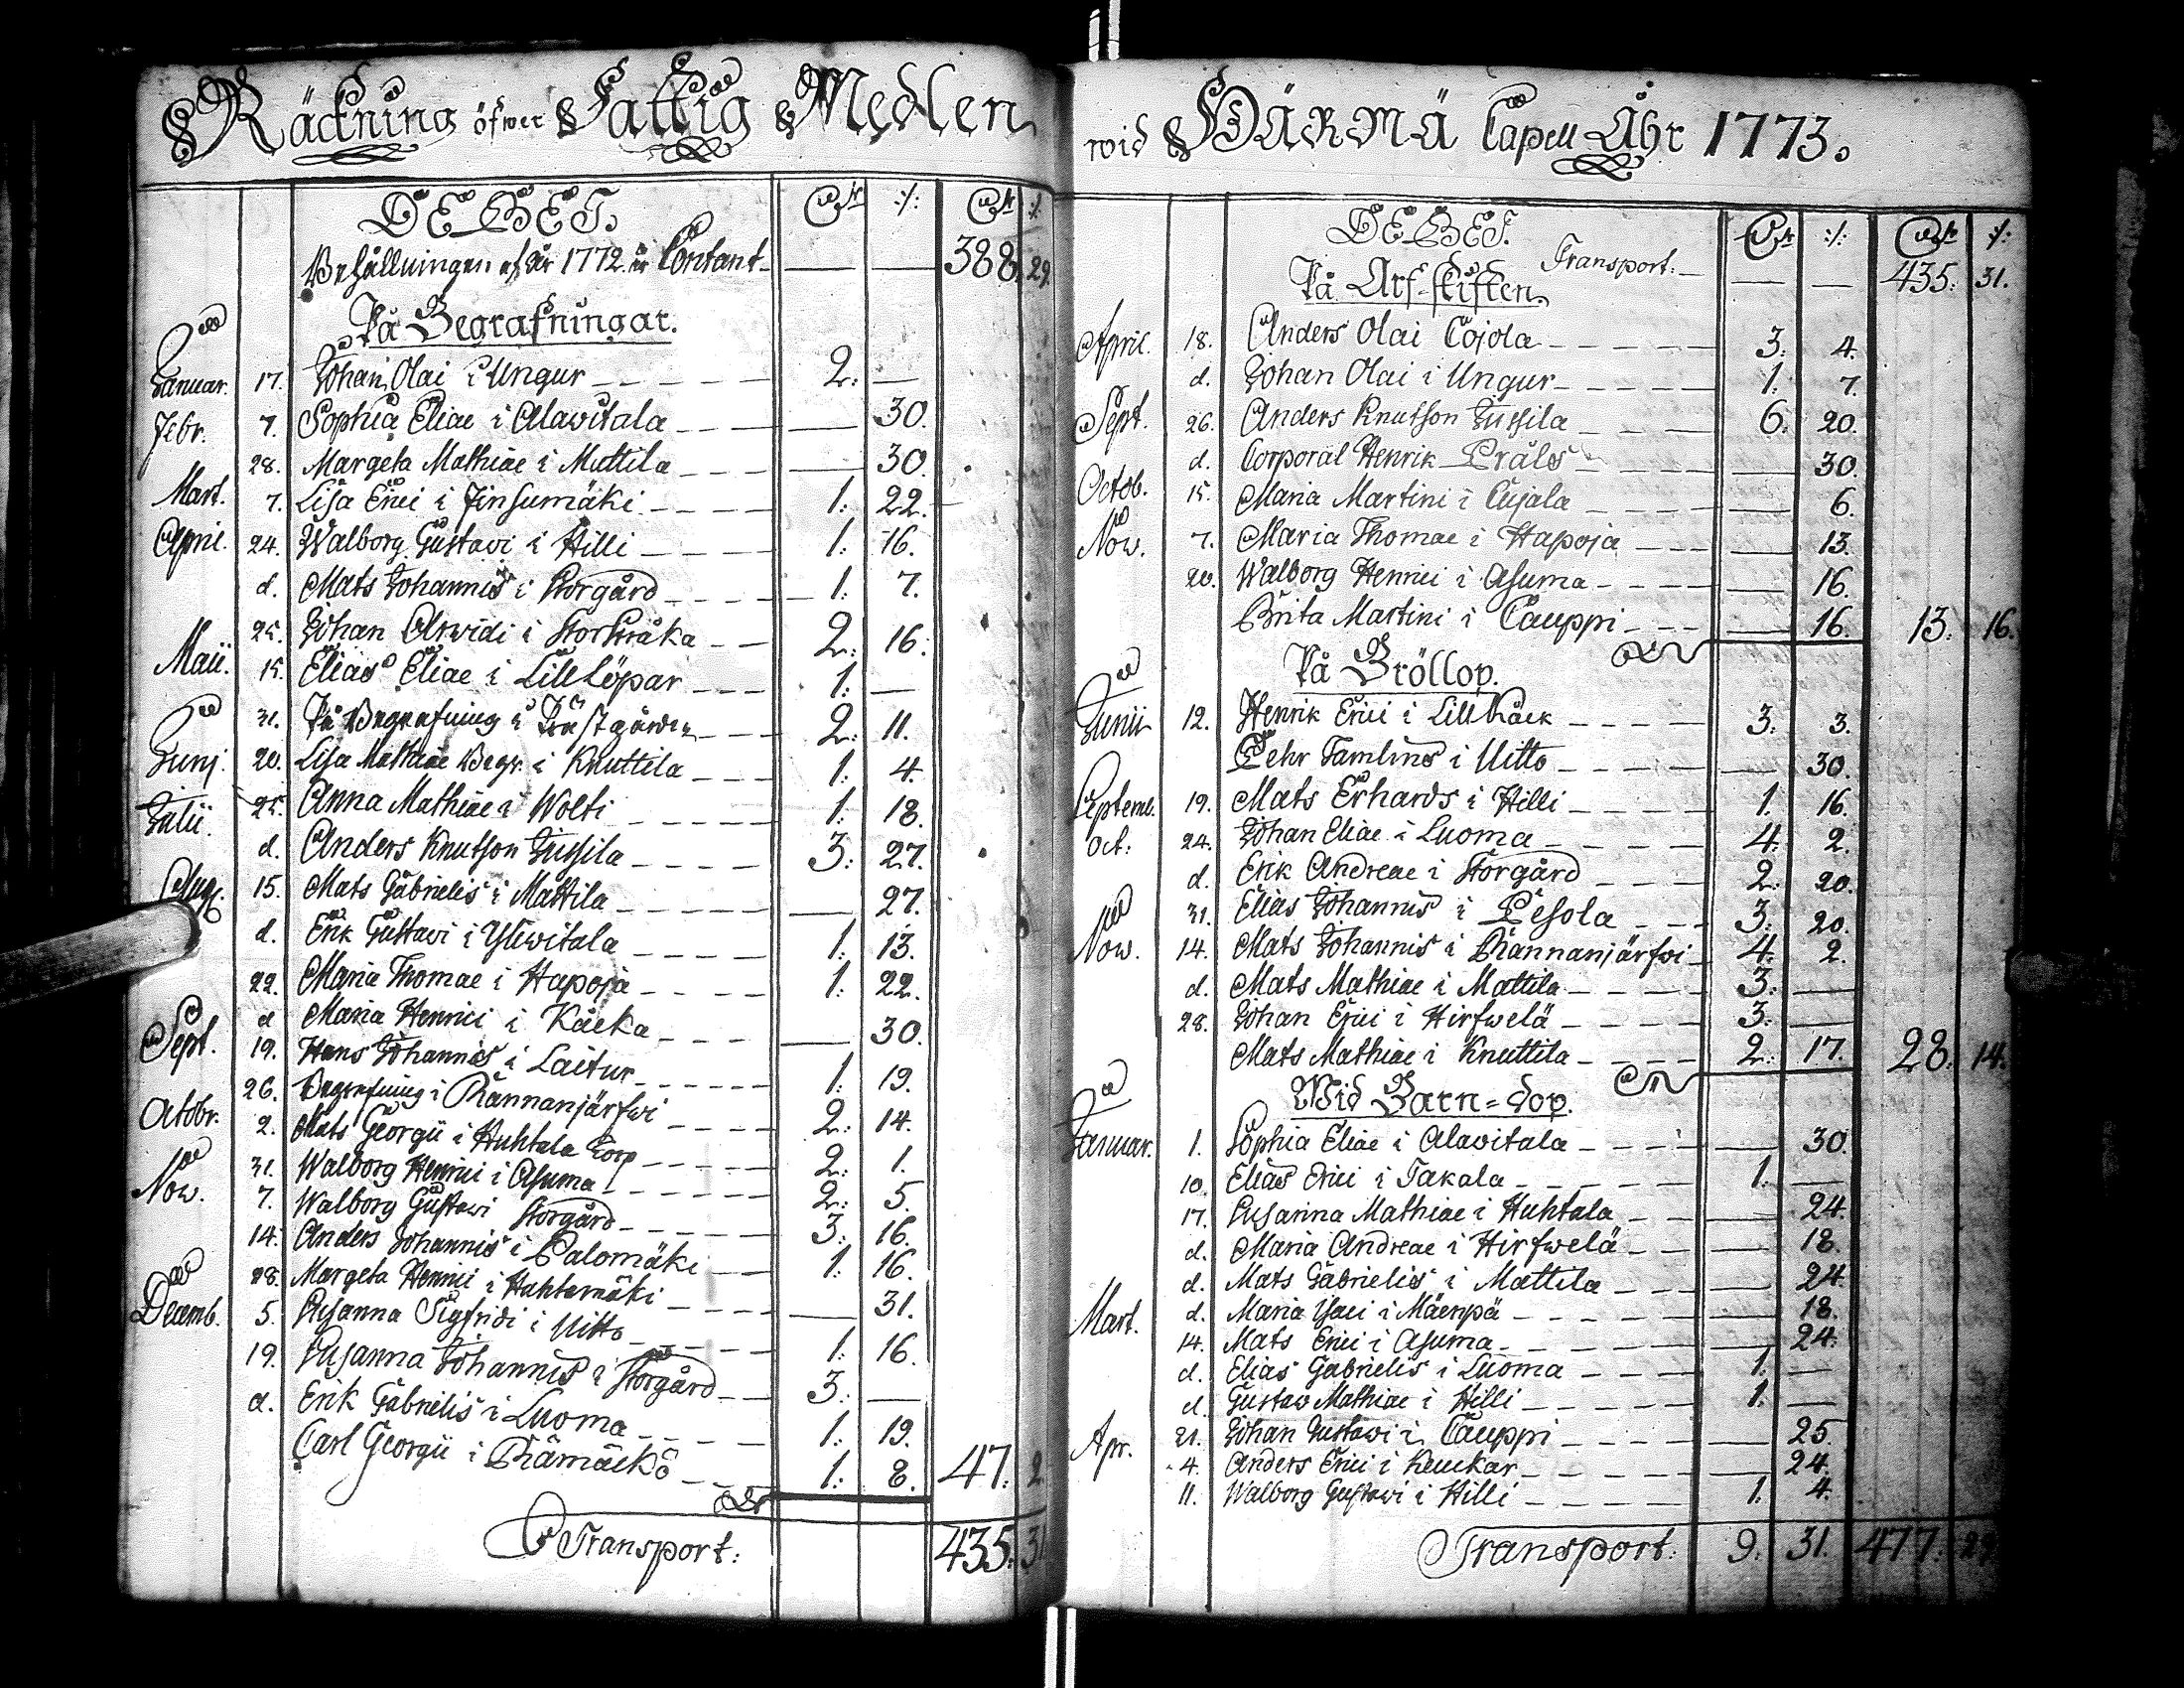 Räckning öfwer Fattig Medlen
DEBET. Cr /: Cr /:
Behållningen af år 1772 är Contant 388. 29.
På Begrafningar.
Januar. 17. Johan Olai i Ungur 2: —
Febr. 7. Sophia Eliae i Alawitala — 30.
28. Margeta Mathiae i Muttila — 30.
Mart. 7. Lisa Erici i Finsumäki 1: 22.
April. 24. Walborg Gustavi i Hilli 1: 16.
d. Mats Johannis i Storgård 1: 7.
25. Johan Arwidi i 2: 16.
Maii. 15. Elias Eliae i Lill Löpar 1: —
31. På Begrafning i Prästgården 2: 11.
Junj. 20. Lisa Mathiae Begr. i Knuttila 1: 4.
Julii. 25. Anna Mathiae i Wolti 1: 18.
d. Anders Knutson Jussila 3: 27.
Aug. 15. Mats Gabrielis i Mattila — 27.
d. Erik Gustavi i Yliwitala 1: 13.
22. Maria Thomae i Hapoja 1: 22.
d Maria Henrici i Kåcka — 30.
Sept. 19. Hans Johannis i Laitur 1: 19.
26. Begrafning i Rannanjärfwi 2: 14.
Octobr. 2. Mats Georgii i Huhtala Torp 2: 1.
31. Walborg Henrici i Asuma 2: 5.
Nov. 7. Walborg Gustavi Storgård 3: 16.
14. Anders Johannis i Palomäki 1: 16.
28. Margeta Henrici i Huhtamäki — 31.
Decemb. 5. Susanna Sigfridi i Uitto 1: 16.
19. Susanna Johannis i Storgård 3: —
d. Erik Gabrielis i Luoma 1: 19.
Carl Georgii i Rämäckö 1: 8. 47: 2
Transport: 435: 31
wid Härmä Capell Åhr 1773.
DEBET. Cr /: Cr /:
Transport: — — 435: 31.
På Arf-skiften.
April. 18. Anders Olai Cojola 3: 4.
d. Johan Olai i Ungur 1: 7.
Sept. 26. Anders Knutson Jussila 6: 20.
d. Corporal Henrik Pråls — 30.
Octob. 15. Maria Martini i Cujala — 6.
Nov. 7. Maria Thomae i Hapoja — 13.
20. Walborg Henrici i Asuma — 16.
Brita Martini i Cauppi — 16. 13: 16.
På Bröllop.
Junii 12. Henrik Erici i Lillbäck 3: 3.
Pehr Tamlins i Uitto — 30.
Septemb. 19. Mats Erhards i Hilli 1. 16.
Oct: 24. Johan Eliae i Luoma 4: 2.
d. Erik Andreae i Storgård 2: 20.
31. Elias Johannis i Pesola 3: 20.
Nov. 14. Mats Johannis i Rannanjärfwi 4: 2.
d. Mats Mathiae i Mattila 3: —
28. Johan Erici i Hirfwelä 3: —
Mats Mathiae i Knuttila 2: 17. 28: 14.
Wid Barn=dop.
Januar. 1. Sophia Eliae i Alawitala — 30.
10. Elias Erici i Takala 1. —
17. Susanna Mathiae i Huhtala — 24.
d. Maria Andreae i Hirfwelä — 18.
d. Mats Gabrielis i Mattila — 24.
Mart. d. Maria Isaci i Mäenpä — 18.
14. Mats Erici i Asuma — 24.
d. Elias Gabrielis i Luoma 1. —
d. Gustav Mathiae i Hilli 1. —
21. Johan Gustavi i Cauppi — 25.
Apr. 4. Anders Erici i Keuckar — 24.
11. Walborg Gustavi i Hilli 1. 4.
Transport: 9: 31. 477: 29